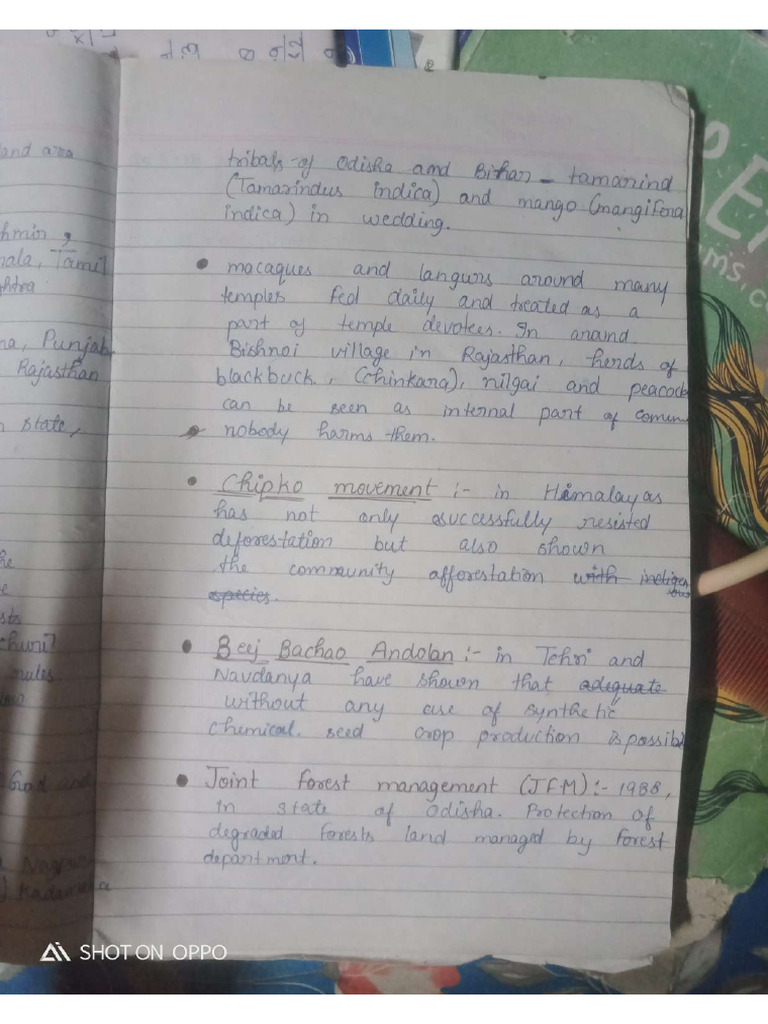 and area
Tamil
Punjab
Rajasthan
state,
rules
tribals of Odisha and Bihar - tamarind
(Tamarindus indica) and mango (mangifera
indica) in wedding.
• macaques and langurs around many
temples fed daily and treated as a
part of temple devotees. In anand
Bishnoi village in Rajasthan, herds of
blackbuck, (chinkara), nilgai and peacock
can be seen as internal part of commun
nobody harms them.
• Chipko movement :- in Himalayas
has not only successfully resisted
deforestation but also shown
the community afforestation with indigenous
species.
• Beej Bachao Andolan :- in Tehri and
Navdanya have shown that adequate
without any use of synthetic
chemical. seed crop production is possibl
• Joint forest management (JFM) :- 1988,
in state of Odisha. Protection of
degraded forests land managed by forest
department.
SHOT ON OPPO